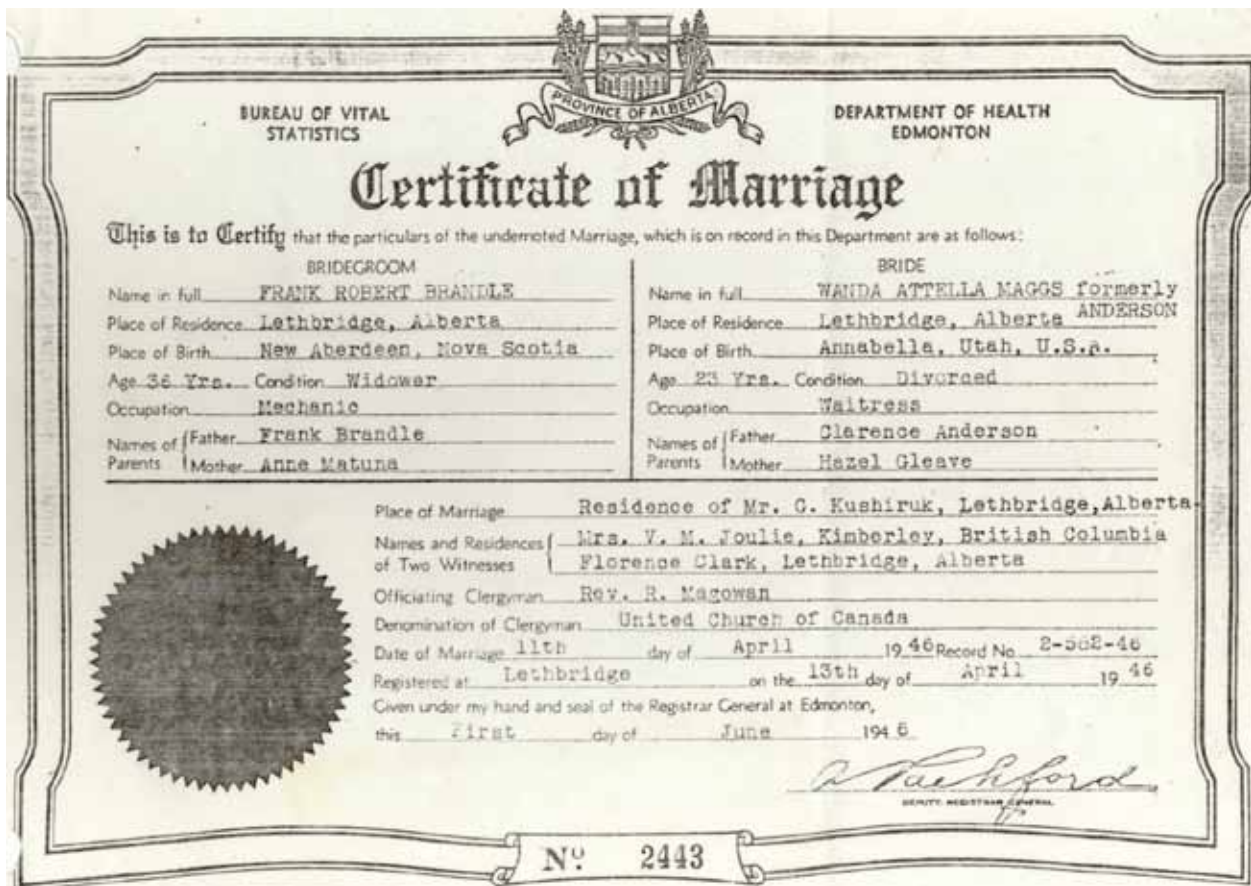 PROVINCE OF ALBERTA
BUREAU OF VITAL
STATISTICS
DEPARTMENT OF HEALTH
EDMONTON
Certificate of Marriage
This is to Certify that the particulars of the undernoted Marriage, which is on record in this Department are as follows:
BRIDEGROOM
Name in full FRANK ROBERT BRANDLE
Place of Residence Lethbridge, Alberta
Place of Birth New Aberdeen, Nova Scotia
Age 36 Yrs. Condition Widower
Occupation Mechanic
Names of Parents Father Frank Brandle
Mother Anne Matuna
BRIDE
Name in full WANDA ATTELLA MAGGS formerly
ANDERSON
Place of Residence Lethbridge, Alberta
Place of Birth Annabella, Utah, U.S.A.
Age 23 Yrs. Condition Divorced
Occupation Waitress
Names of Parents Father Clarence Anderson
Mother Hazel Gleave
Place of Marriage Residence of Mr. G. Kushiruk, Lethbridge, Alberta
Names and Residences Mrs. V. M. Joulie, Kimberley, British Columbia
of Two Witnesses Florence Clark, Lethbridge, Alberta
Officiating Clergyman Rev. R. Magowan
Denomination of Clergyman United Church of Canada
Date of Marriage 11th day of April 1946 Record No 2-562-46
Registered at Lethbridge on the 13th day of April 1946
Given under my hand and seal of the Registrar General at Edmonton,
this First day of June 1946
DEPUTY REGISTRAR GENERAL
No. 2443